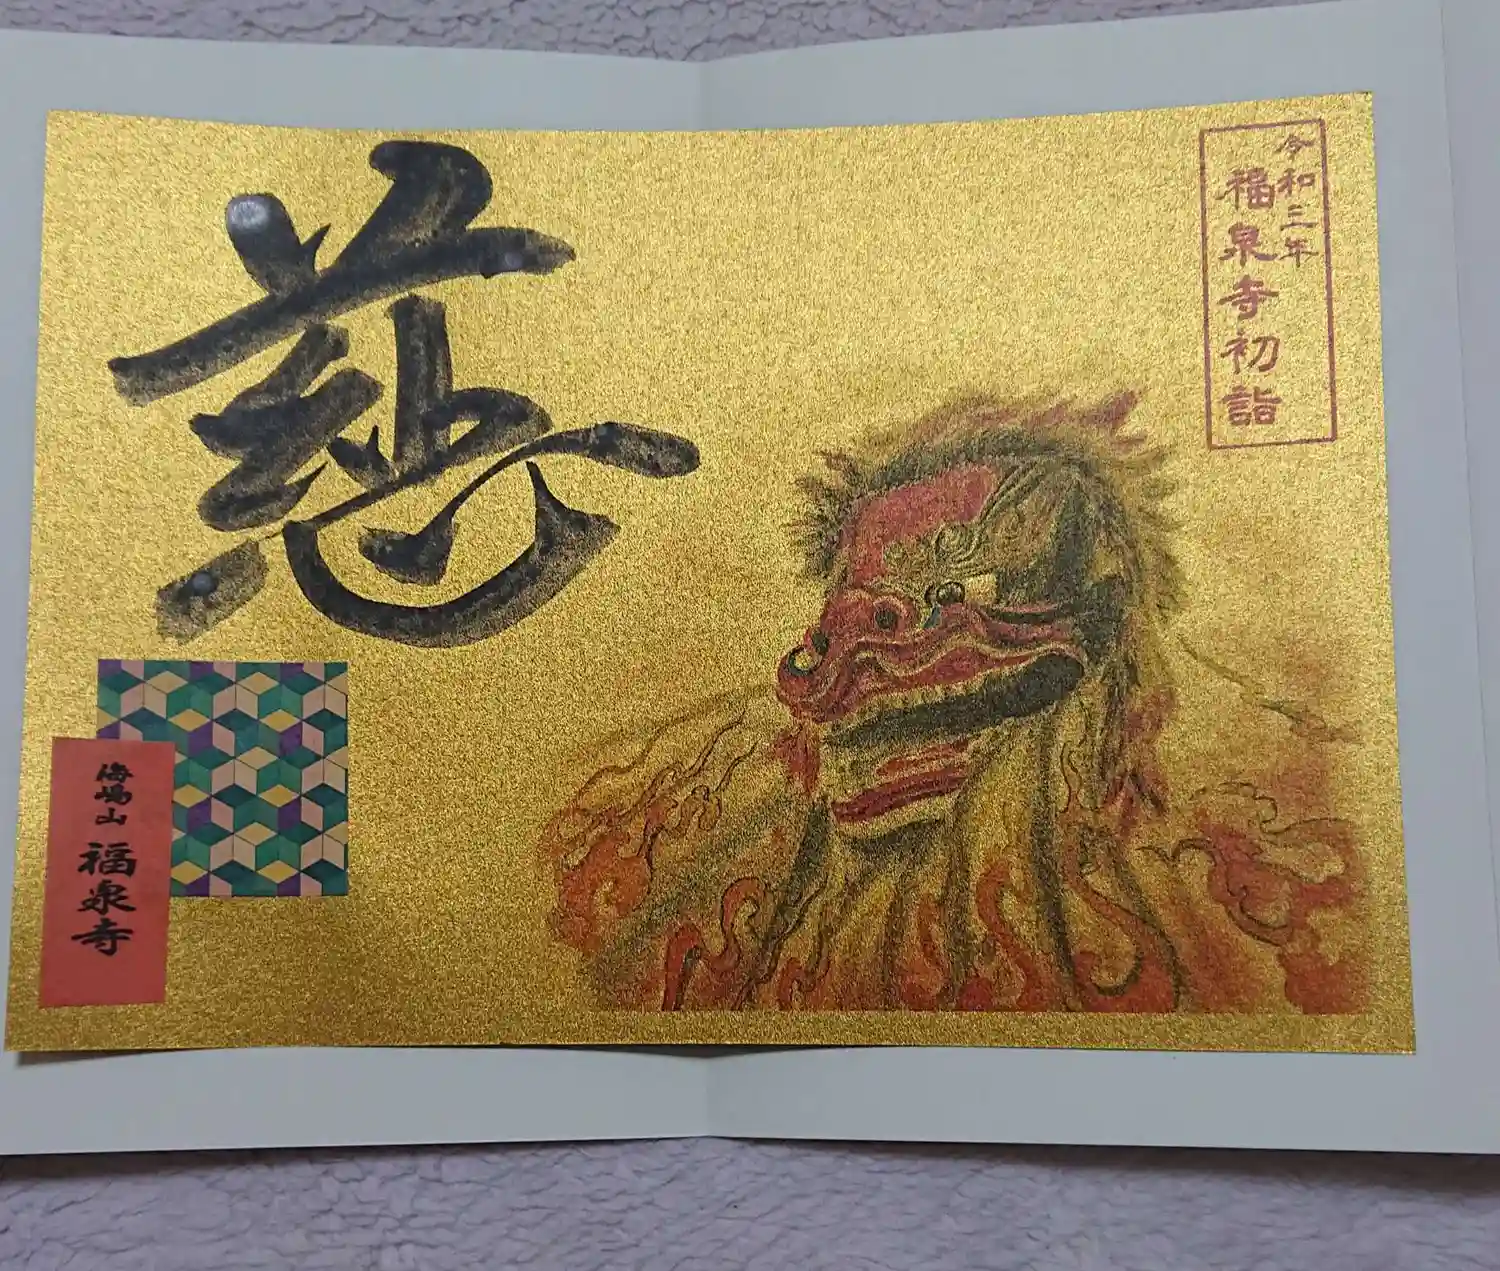 令和三年
福泉寺初詣
慈
海嶋山 福泉寺